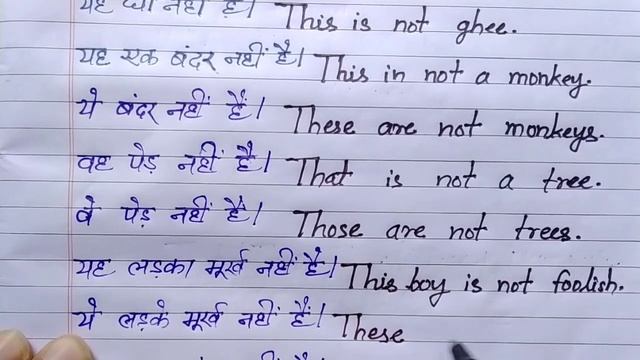 यह घी नहीं है। This is not ghee.
यह एक बंदर नहीं है। This in not a monkey.
ये बंदर नहीं हैं। These are not monkeys.
वह पेड़ नहीं है। That is not a tree.
वे पेड़ नहीं हैं। Those are not trees.
यह लड़का मूर्ख नहीं है। This boy is not foolish.
ये लड़के मूर्ख नहीं हैं। These